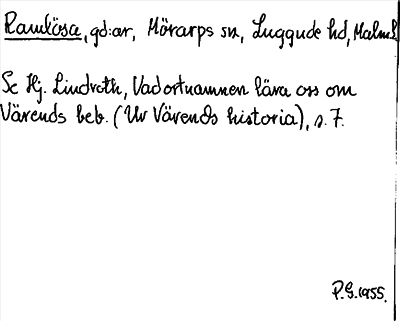 Ramlösa, gd:ar, Mörarps sn, Luggude hd, Malm.
Se Hj. Lindroth, Vad ortnamnen lära oss om
Värends beb. (Ur Värends historia), s. 7.
P.G. 1955.